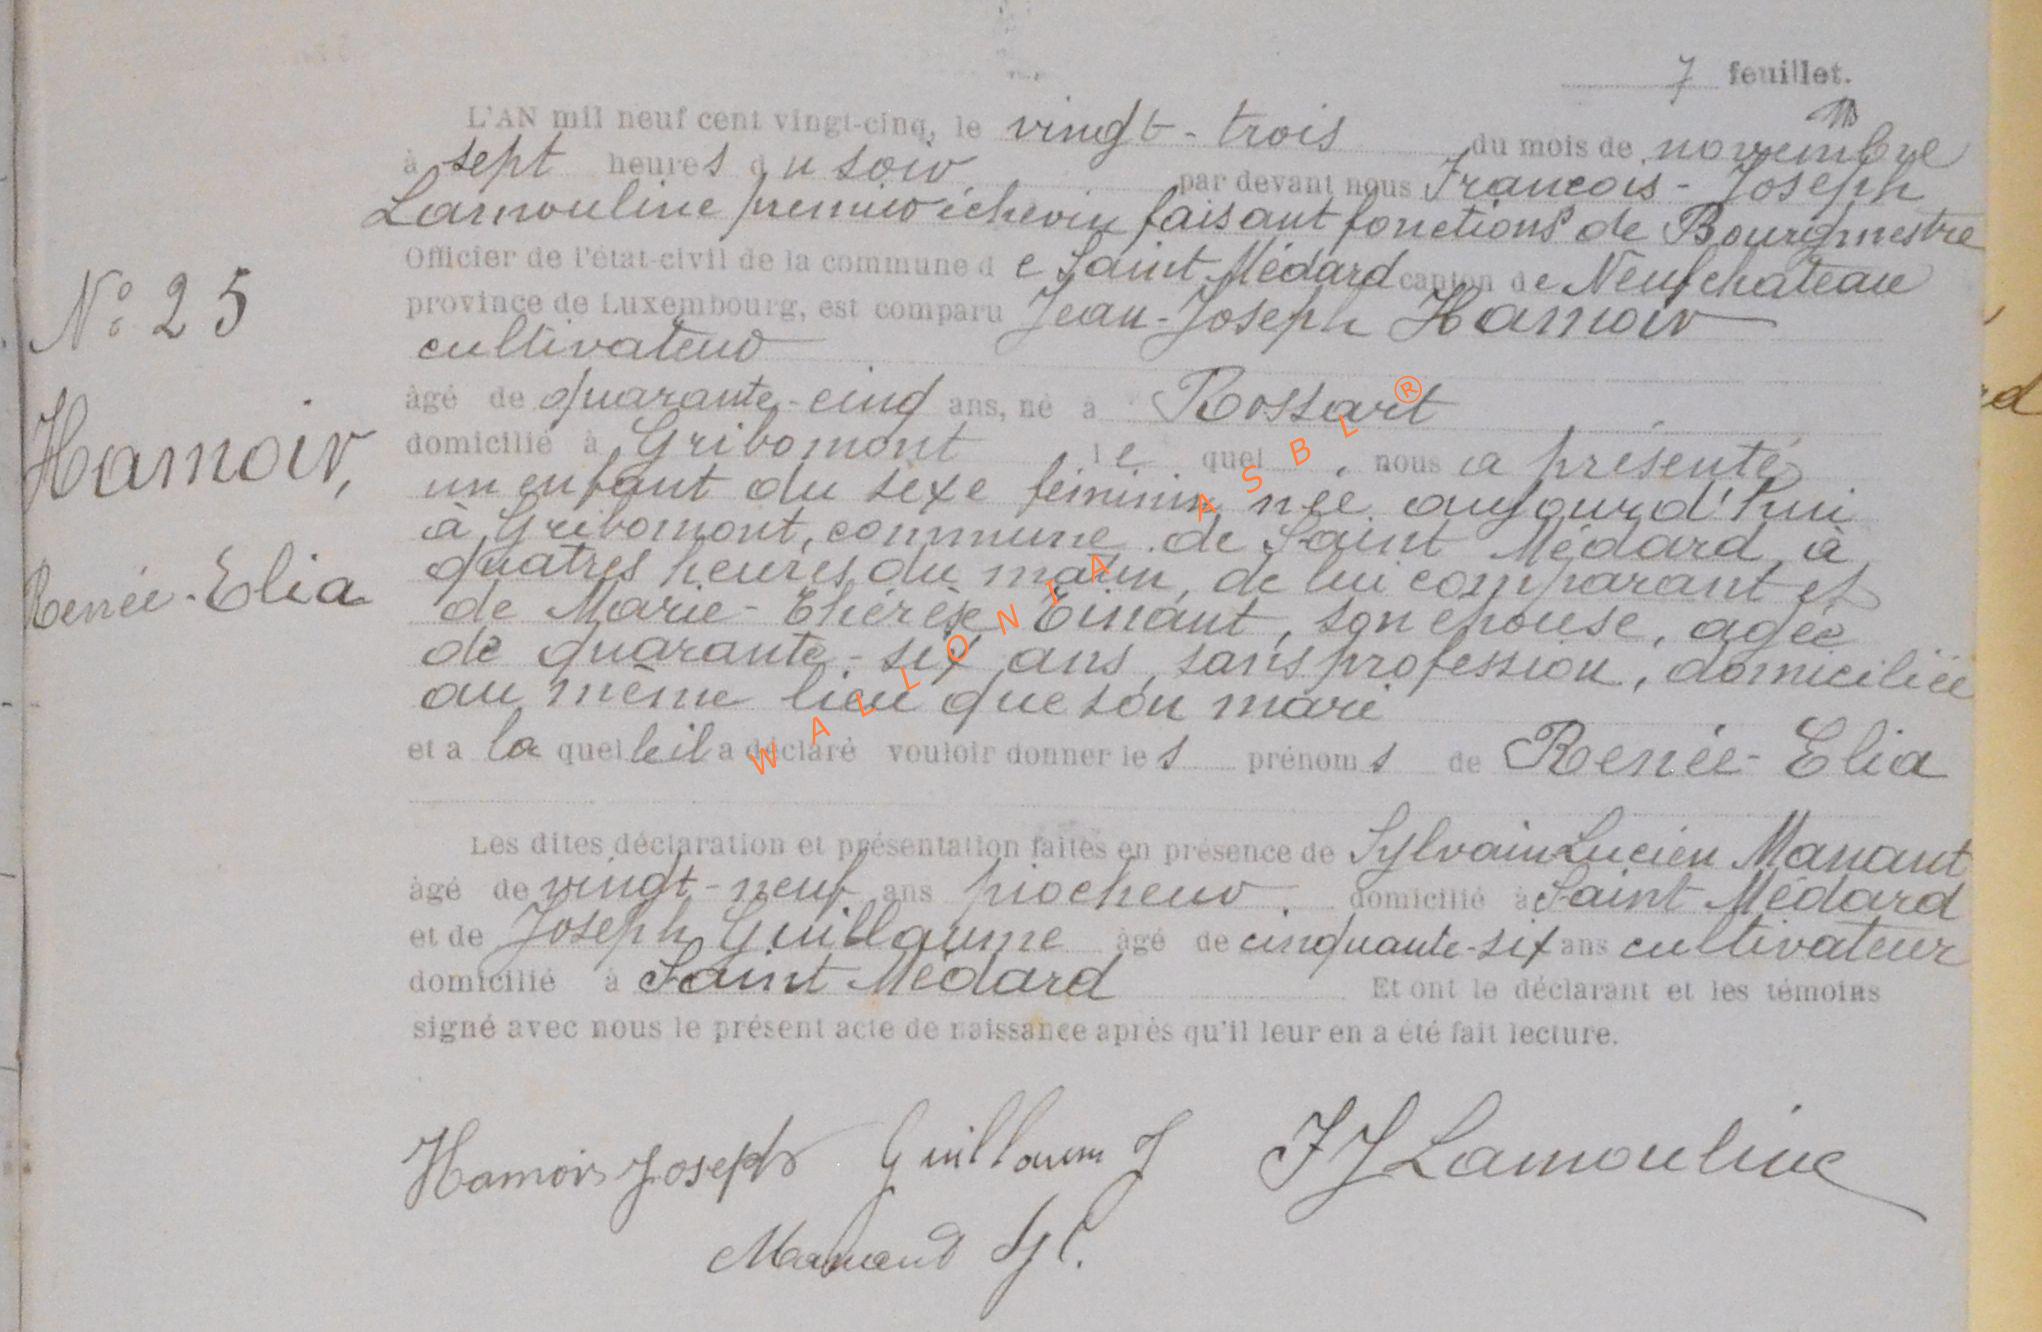 7 feuillet.
L'AN mil neuf cent vingt-cinq, le vingt-trois du mois de novembre
à sept heures du soir, par devant nous Francois-Joseph
Lamouline premier échevin faisant fonctions de Bourgmestre
Officier de l'état-civil de la commune de Saint Médard canton de Neufchateau
province de Luxembourg, est comparu Jean-Joseph Hamoir
cultivateur
âgé de quarante-cinq ans, né à Rossart
domicilié à Gribomont lequel, nous a présenté
un enfant du sexe féminin née aujourd'hui
à Gribomont, commune de Saint Médard, à
quatres heures du matin, de lui comparant et
de Marie-Thérèse Evinant, son épouse, agée
de quarante-six ans, sans profession, domiciliée
au même lieu que son mari
et a laquelle il a déclaré vouloir donner les prénoms de Renée-Elia
Les dites déclaration et présentation faites en présence de Sylvain Lucien Manant
âgé de vingt-neuf ans piocheur. domicilié à Saint Médard
et de Joseph Guillaume âgé de cinquante-six ans cultivateur
domicilié à Saint Médard Et ont le déclarant et les témoins
signé avec nous le présent acte de naissance après qu'il leur en a été fait lecture.
Hamoir Joseph Guillaume J FJ Lamouline
Manand Syl.
N° 25
Hamoir,
Renée-Elia
WALLONIA ASBL ®